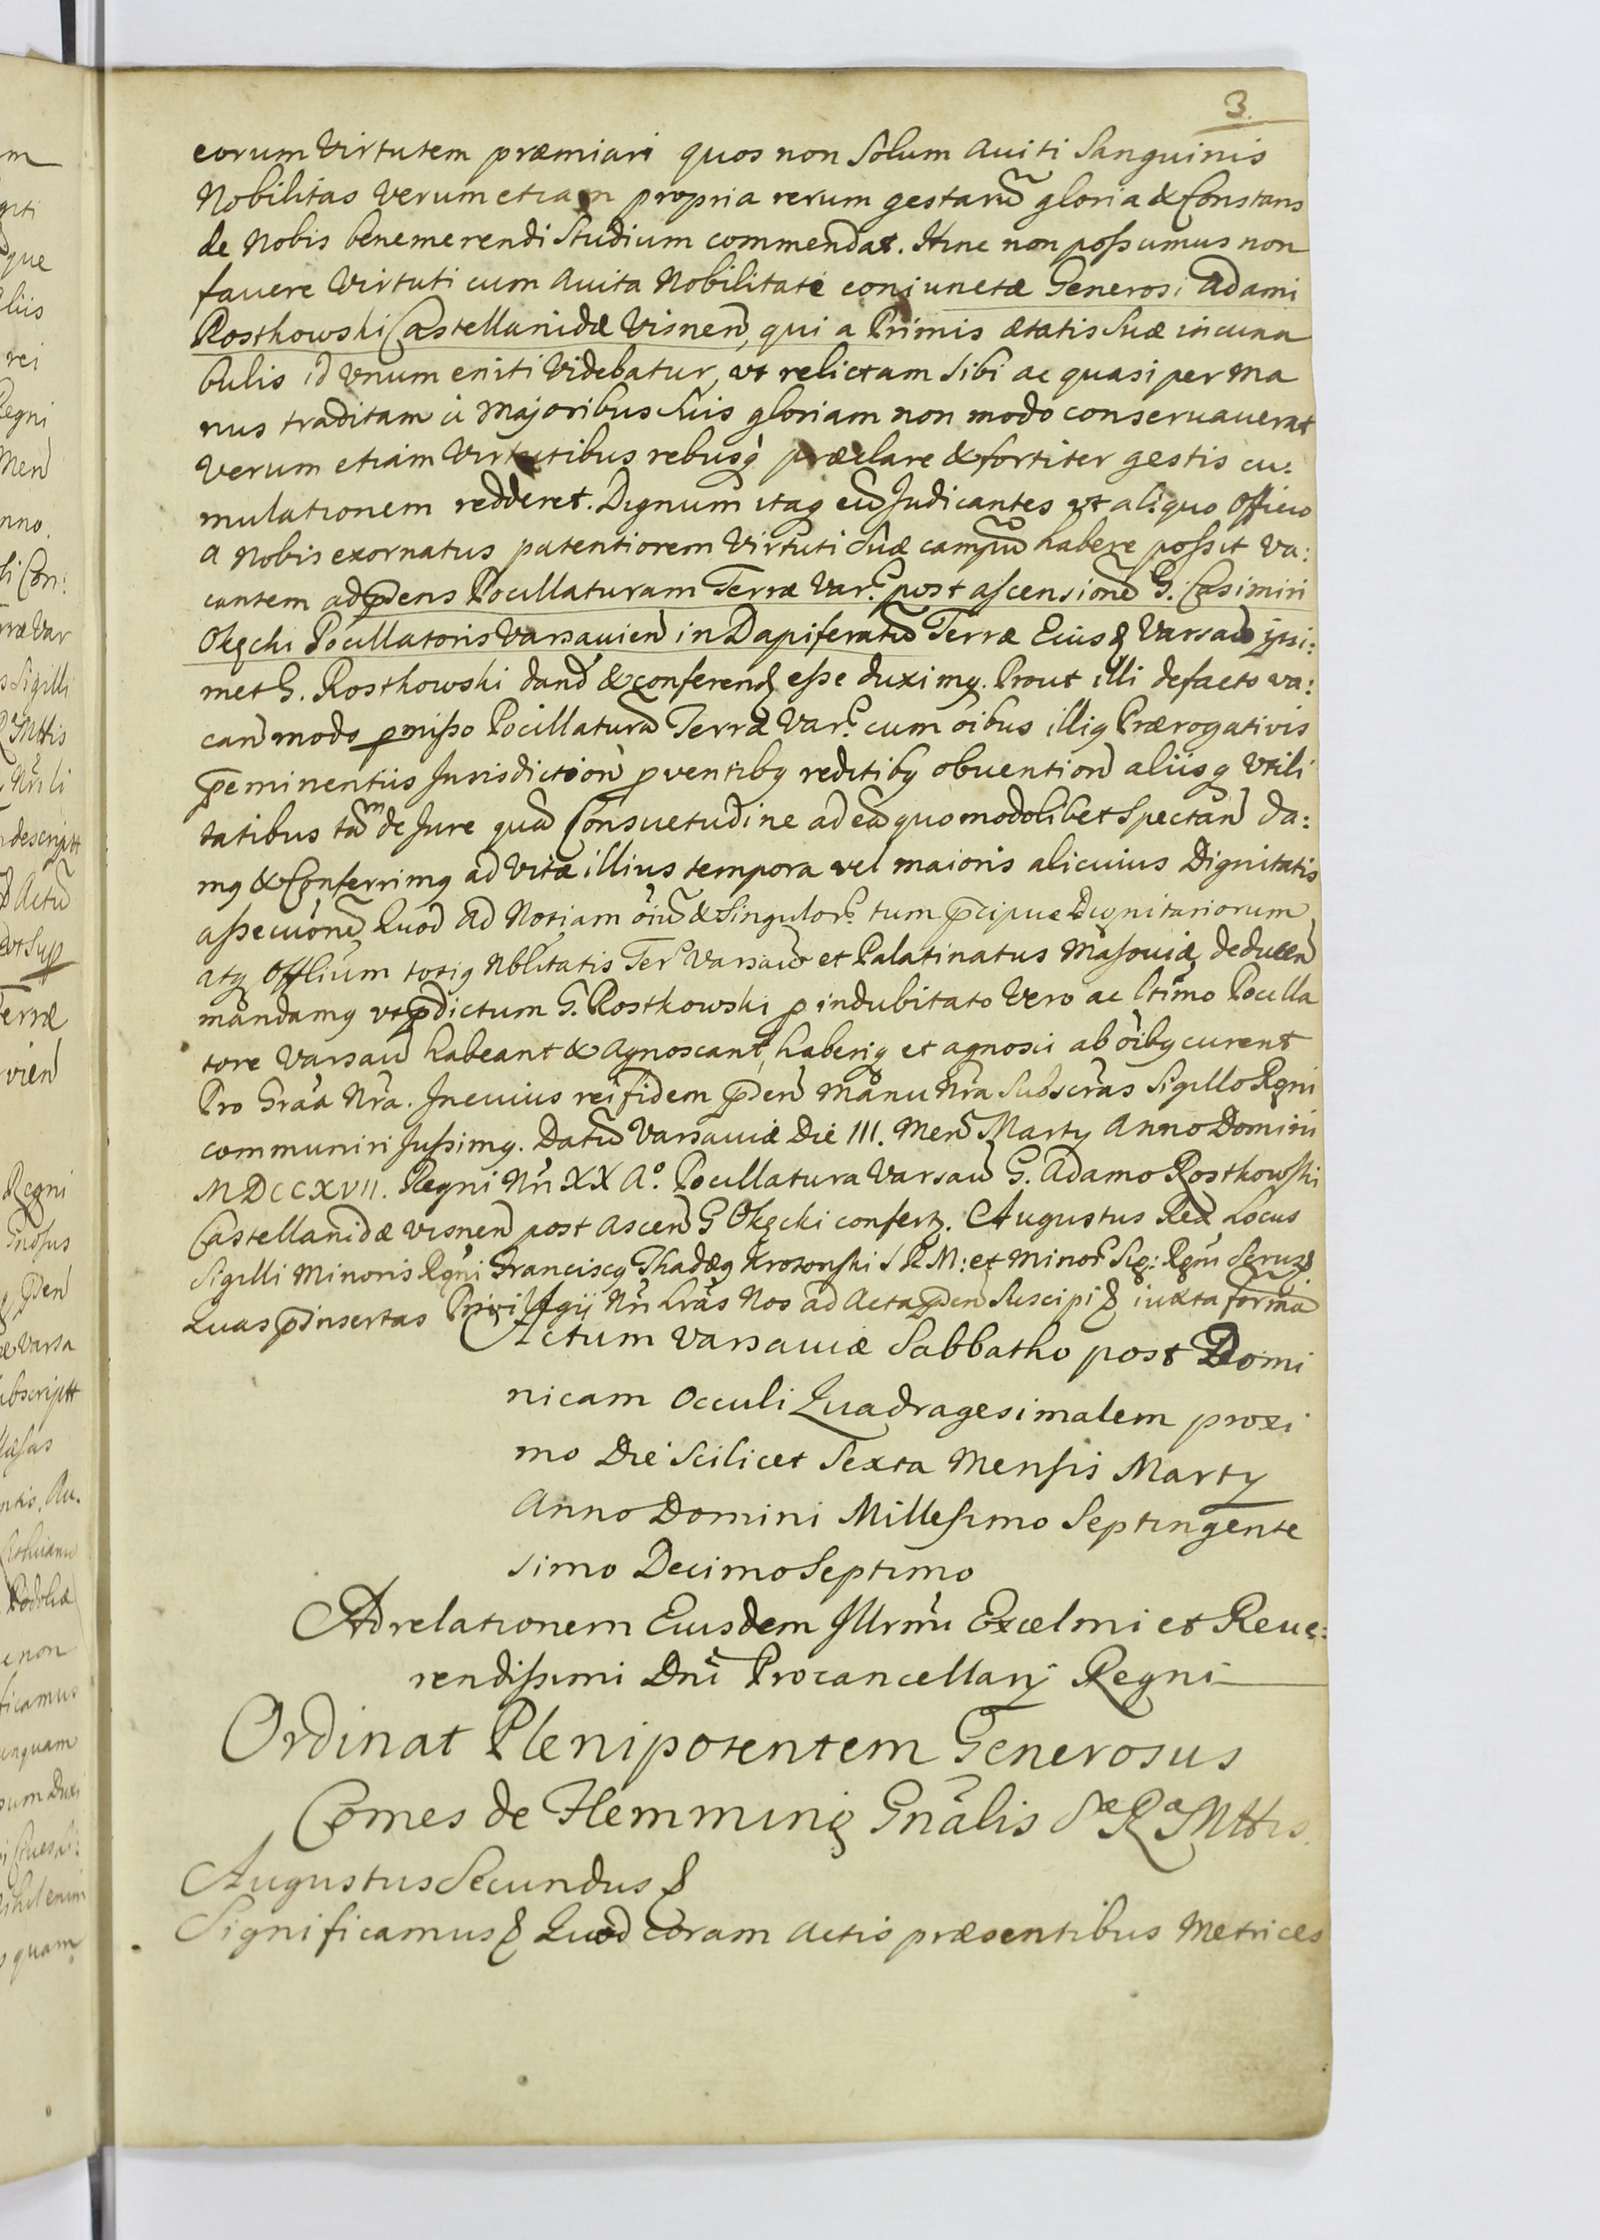 3.
eorum Virtutem præmiari quos non Solum Auiti Sanguinis
Nobilitas Verum etiam propria rerum gestarũ gloria & Constans
de Nobis benemerendi Studium commendat. Hinc non possumus non
fauere Virtuti cum Auita Nobilitate coniunctæ Generosi Adami
Rostkowski Castellanidæ Visnen̄, qui a Primis ætatis Suæ incuna
bulis id Vnum eniti Videbatur, vt relictam Sibi ac quasi per ma
nus traditam à Majoribus Suis gloriam non modo conseruauerat
Verum etiam Virtutibus rebusq præclare & fortiter gestis cu:
mulationem redderet. Dignum itaq eũ Judicantes vt aliquo Officio
a Nobis exornatus patentiorem Virtuti Suæ campũ habere possit Va:
cantem ad p̄dens Pocillaturam Terræ Vars̄. post ascensionē G. Casimiri
Okęcki Pocillatoris Varsauien̄ in Dapiferatũ Terræ Eiusd Varsau̅ ipsi:
met G. Rostkowski dand̄ & conferend esse duximq. Prout illi defacto va:
can̄ modo p̱misso Pocillaturā Terræ Vars̄. cum oībus illiq Prærogativis
p̄eminentiis Jurisdiction̄ p̱ventibq reditibq obuention̄ aliisq Vtili
tatibus tam̄ de Jure quā Consuetudine ad eā quomodolibet Spectan̄ da:
mq & Conferrimq ad Vitæ illius tempora vel maioris alicuius Dignitatis
assecuōnē Quod ad Notiam oīū & Singulor. tum p̄cipue Dignitariorum
atq Offlium totiq Nblitatis Ter. Varsau̅ et Palatinatus Masouiæ deducen̄
mandamq vt p̄dictum G. Rostkowski p̱ indubitato Vero ac ltimo Pocilla
tore Varsau̅ habeant & Agnoscant, haberiq et agnosci ab oībq curent
Pro Grāa Nrā. In cuius rei fidem p̄den̄ Manu Nrā Subscrās Sigillo Rgni
communiri Jussimq. Datũ Varsauiæ Die III. Men̄ Marty Anno Domini
MDCCXVII. Regni Nrī XX Aº. Pocillatura Varsau̅ G. Adamo Rostkowski
Castellanidæ visnen̄ post Ascen̄ G Okęcki confertq. Augustus Rex Locus
Sigilli Minoris Rgni Franciscq Thadæq Krosonski S R M: et Minor. Sig: Rgni Secrus
Quas p̄insertas Privilegij Nrī Lrās Nos ad Acta p̄den̄ Suscipi & iuxta formā
Actum Varsauiæ Sabbatho post Domi
nicam Occuli Quadragesimalem proxi
mo Die Scilicet Sexta Mensis Marty
Anno Domini Millesimo Septingente
simo Decimo Septimo
Ad relationem Eiusdem Illrmi Excelmi et Reue:
rendissimi Dnī Procancellarij Regni
Ordinat Plenipotentem Generosus
Comes de Flemming Gnālis Sæ Ræ Mttis
Augustus Secundus &
Significamus & Quod Coram Actis præsentibus Metrices